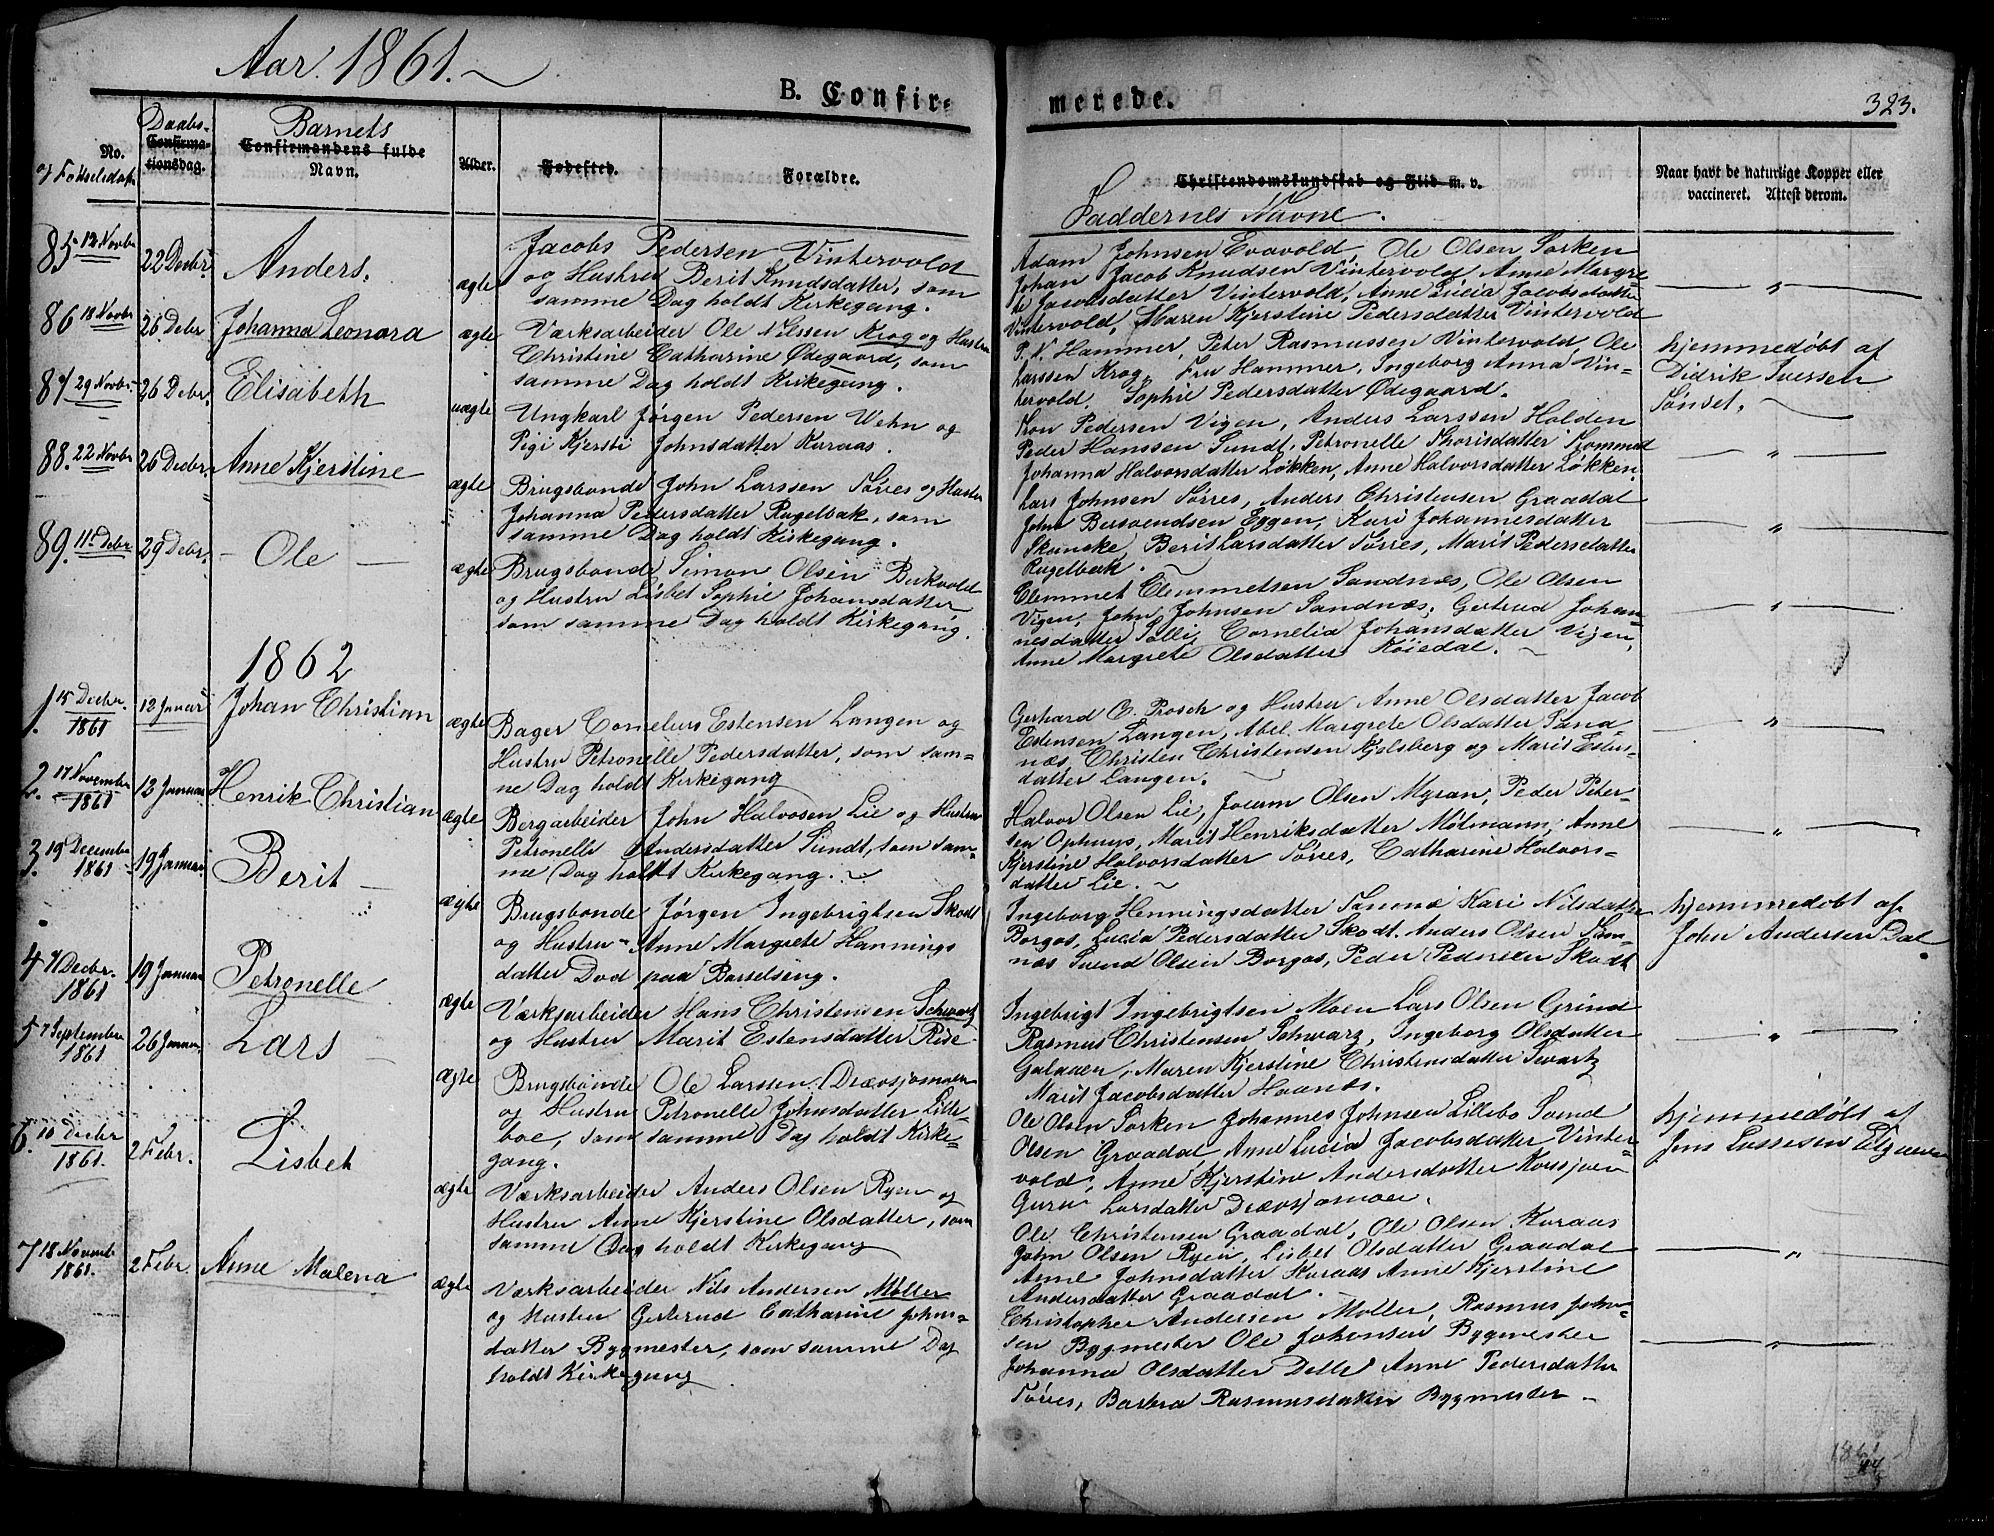 Aar. 1861.
B. Confir-
merede.
323.
Daabs-
Barnets
No.
Confirma-
tionsdag.
Confirmandens fulde
Navn.
Alder.
Fødested.
Forældre.
Christendomskundskab og Flid m. v.
Faddernes Navne.
Naar havt de naturlige Kopper eller
vaccineret. Attest derom.
85 12 Novbr 22 Decbr Anders. ægte
Jacob Pedersen Vintervold
og Hustru Berit Knudsdatter, som
samme Dag holdt Kirkegang.
Adam Johnsen Evavold, Ole Olsen Sorken
Johan Jacob Knudsen Vintervold Anne Margre
te Jacobsdatter Vintervold, Anne Lucia Jacobsdatter
Vintervold, Maren Kjerstine Pedersdatter Vintervold
86 18 Novbr 26 Decbr Johanna Leonora ægte
Værksarbeider Ole Nilssen Krog og Hustru
Christine Catharine Ødegaard, som
samme Dag holdt Kirkegang.
P. N. Hammer, Peter Rasmussen Vintervold Ole
Larssen Krog, Fru Hammer, Ingeborg Anna Vin-
tervold, Sophie Pedersdatter Ødegaard.
hjemmedøbt af
Didrik Iversen
Tønset.
87 29 Novbr 26 Debr. Elisabeth uægte
Ungkarl Jørgen Pedersen Wehn og
Pige Kjersti Johnsdatter Kuraas.
Pedersen Vigen, Anders Larssen Holden
Peder Hanssen Sundt, Petronelle Thorisdatter
Johanna Halvorsdatter Løkken, Anne Halvorsdatter Løkken.
88. 22 Novbr 26 Decbr Anne Kjerstine ægte
Brugsbonde John Larssen Tørres og Hustru
Johanna Pedersdatter Rugelbak, som
samme Dag holdt Kirkegang.
Lars Johnsen Tørres, Anders Christensen Graadal
John Bersvendsen Eggen, Kari Johannesdatter
Skancke, Berit Larsdatter Tørres, Marit Pedersdatter
Rugelbak.
89. 11 Debr 29 Debr. Ole ægte
Brugsbonde Simon Olsen Birkvold
og Hustru Lisbet Sophie Johansdatter
som samme Dag holdt Kirkegang.
Clemmet Clemmetsen Sandnæs, Ole Olsen
Vigen, John Johnsen Sandnæs, Gertrud Johan-
nesdatter Solli, Cornelia Johansdatter Vigen,
Anne Margrete Olsdatter Røisdal.
1862
1. 15 Decbr. 1861 12 Januar Johan Christian ægte
Bager Cornelius Estensen Langen og
Hustru Petronelle Pedersdatter, som sam-
me Dag holdt Kirkegang
Gerhard C. Prosch og Hustru Anne Olsdatter Jacob
Estensen Langen, Abel Margrete Olsdatter Sand
næs, Christen Christensen Kjelsberg og Marit Estens-
datter Langen.
2. 17 November 1861 12 Januar Henrik Christian ægte
Bergarbeider John Halvorsen Lie og Hustru
Petronelle Andersdatter Sundt, som sam-
me Dag holdt Kirkegang.
Halvor Olsen Lie, Jocum Olsen Myran, Peder Peter-
sen Ophuus, Marit Henriksdatter Mølmann, Anne
Kjerstine Halvorsdatter Tørres, Catharine Halvors-
datter Lie.
3. 19 December 1861 19 Januar Berit ægte
Brugsbonde Jørgen Ingebrigtsen Skodt
og Hustru Anne Margrete Hannings
datter Død paa Barselseng.
Ingeborg Henningsdatter Kari Nilsdatter
Borgos, Lucia Pedersdatter Skodt. Anders Olsen
næs Svend Olsen Borgos, Peder Pedersen Skodt
hjemmedøbt af
John Andersen Dal
4 7 Decbr. 1861 19 Januar Petronelle ægte
Værksarbeider Hans Christensen Schwartz
og Hustru Marit Estensdatter Ride
Ingebrigt Ingebrigtsen Moen Lars Olsen Grind
Rasmus Christensen Schwarz, Ingeborg Olsdatter
Galaaen, Maren Kjerstine Christensdatter Svartz
Marit Jacobsdatter Haanæs.
5 7 September 1861 26 Januar. Lars ægte
Brugsbonde Ole Larssen Drævsjømoen
og Hustru Petronelle Johnsdatter Lille-
boe, som samme Dag holdt Kirke-
gang.
Ole Olsen Sorken Johannes Johnsen Lillebo Svend
Olsen Graadal Anne Lucia Jacobsdatter Vinter-
vold, Anne Kjerstine Andersdatter Korssjøen
Guru Larsdatter Drævsjømoen.
hjemmedøbt af
Jens
6. 10 Decbr 1861. 2 Febr. Lisbet ægte
Værksarbeider Anders Olsen Ryen og
Hustru Anne Kjerstine Olsdatter, som
samme Dag holdt Kirkegang
Ole Christensen Graadal, Ole Olsen Kuraas
John Olsen Ryen, Lisbet Olsdatter Graadal
Anne Johnsdatter Kuraas Anne Kjerstine
Andersdatter Graadal.
7 18 Novemb 1861. 2 Febr. Anne Malena ægte
Værksarbeider Nils Andersen Møller
og Hustru Gertrud Catharine Johns-
datter Bygmester, som samme Dag
holdt Kirkegang
Christopher Andersen Møller, Rasmus John-
sen Bygmester Ole Johansen Bygmester
Johanna Olsdatter Delle Anne Pedersdatter
Tørres, Barbra Rasmusdatter Bygmester